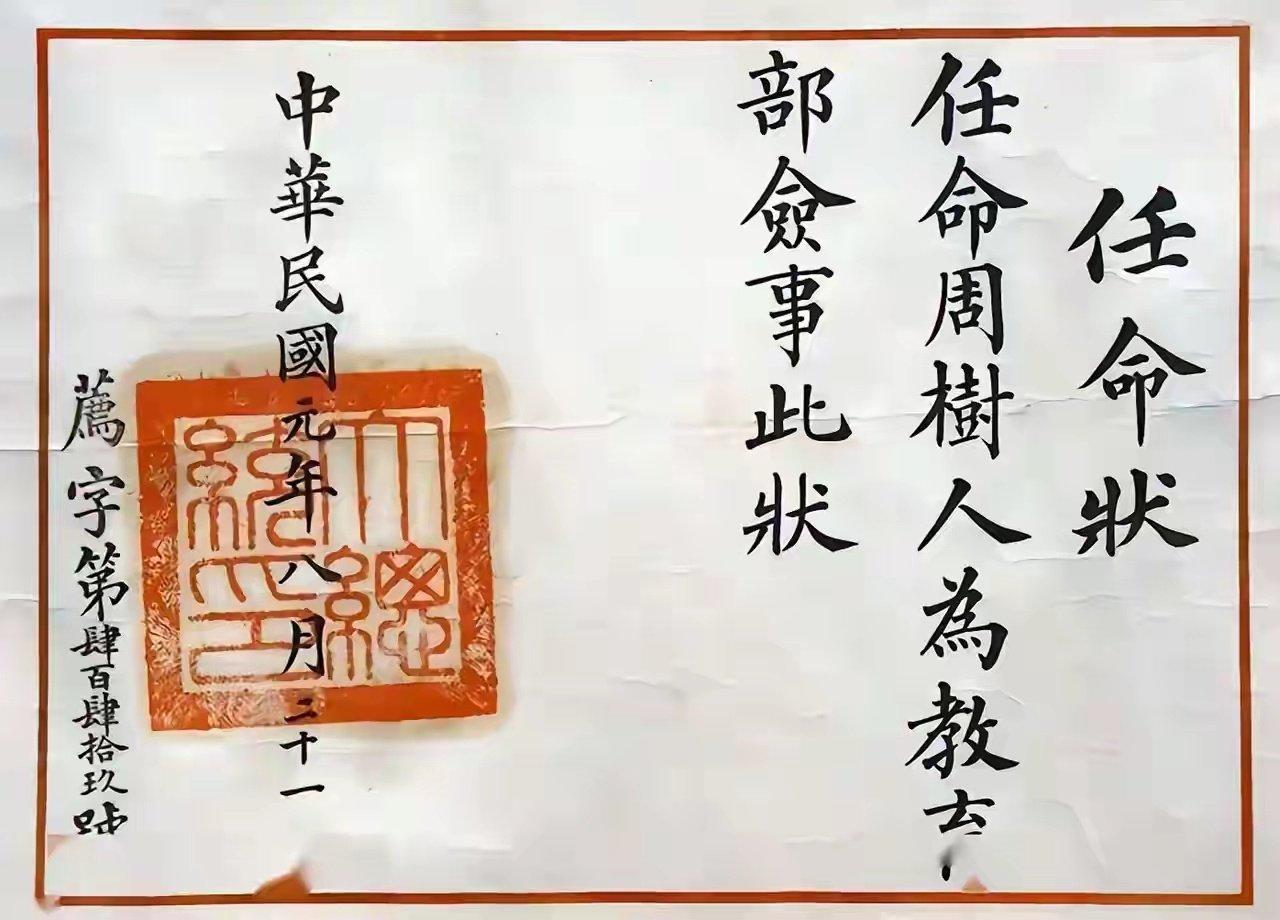 任命狀
任命周樹人為教育
部僉事此狀
中華民國元年八月二十一
大總統印
薦字第肆百肆拾玖號